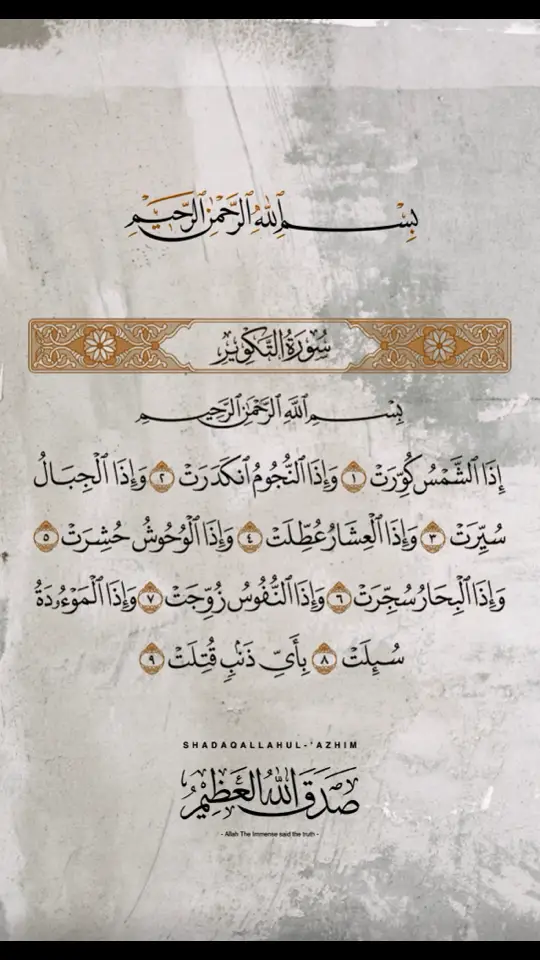 بِسْمِ اللَّهِ الرَّحْمَٰنِ الرَّحِيمِ
سُورَةُ التَّكْوِيرِ
بِسْمِ ٱللَّهِ ٱلرَّحْمَٰنِ ٱلرَّحِيمِ
إِذَا ٱلشَّمْسُ كُوِّرَتْ ١ وَإِذَا ٱلنُّجُومُ ٱنكَدَرَتْ ٢ وَإِذَا ٱلْجِبَالُ
سُيِّرَتْ ٣ وَإِذَا ٱلْعِشَارُ عُطِّلَتْ ٤ وَإِذَا ٱلْوُحُوشُ حُشِرَتْ ٥
وَإِذَا ٱلْبِحَارُ سُجِّرَتْ ٦ وَإِذَا ٱلنُّفُوسُ زُوِّجَتْ ٧ وَإِذَا ٱلْمَوْءُۥدَةُ
سُئِلَتْ ٨ بِأَىِّ ذَنۢبٍ قُتِلَتْ ٩
SHADAQALLAHUL-'AZHIM
صَدَقَ اللهُ العَظِيْمُ
- Allah The Immense said the truth -